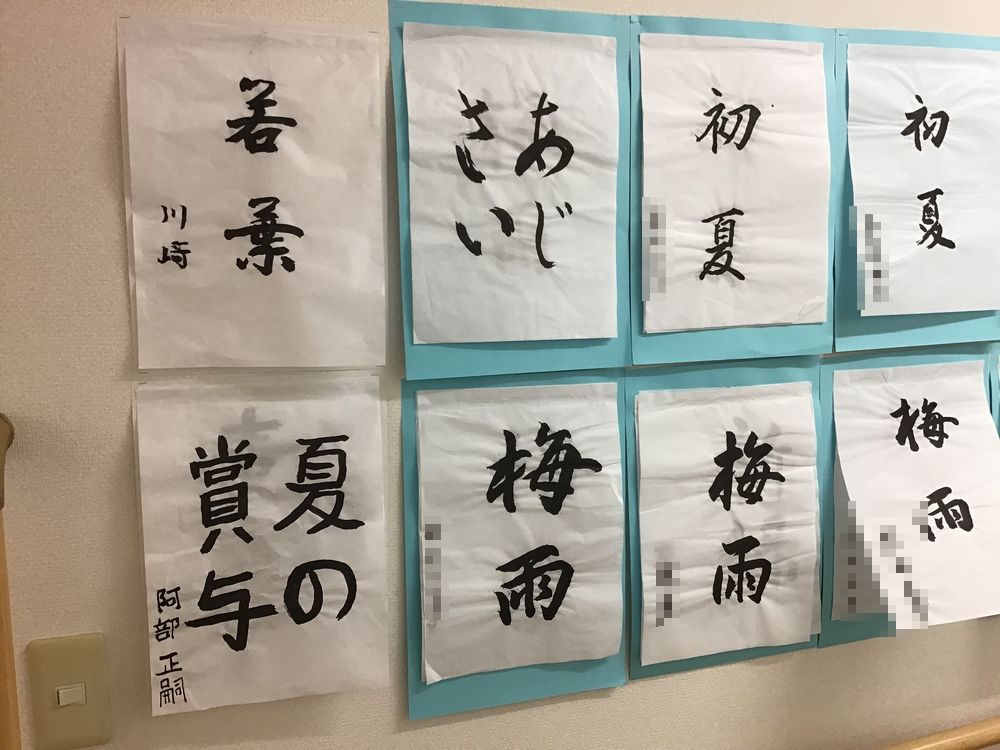 若葉
川崎
あじ
さい
初夏
初夏
夏の
賞与
阿部正嗣
梅雨
梅雨
梅雨